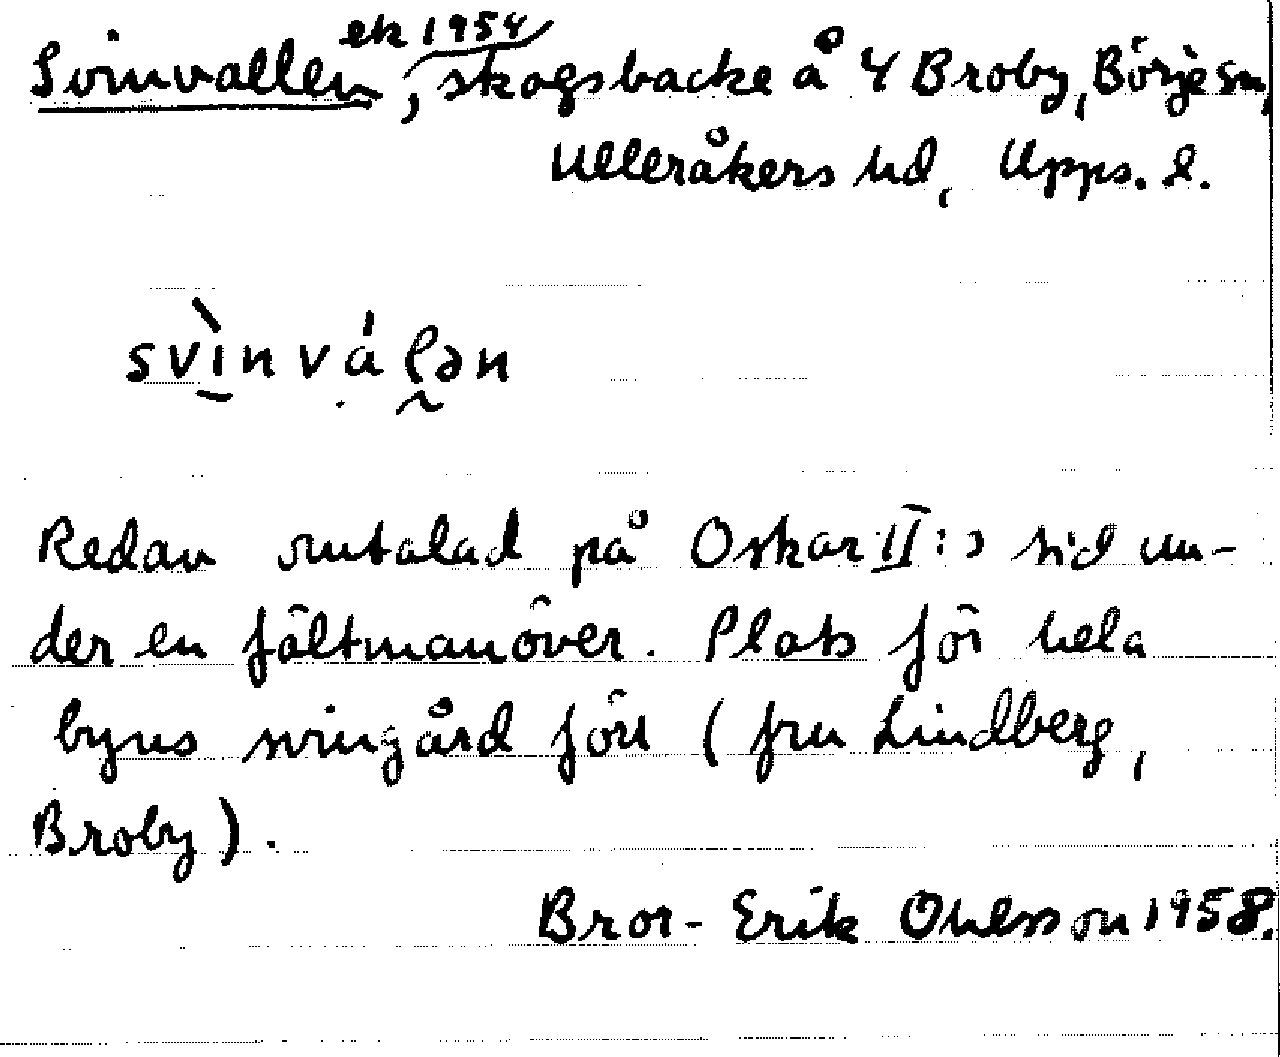 Svinvallen, ek 1954, skogsbacke å 4 Broby, Börje sn,
Ulleråkers hd, Upps. l.
svìnváḷən
Redan omtalad på Oskar II:s tid un-
der en fältmanöver. Plats för hela
byns svingård förr (fru Lindberg,
Broby).
Bror-Erik Ohlsson 1958.